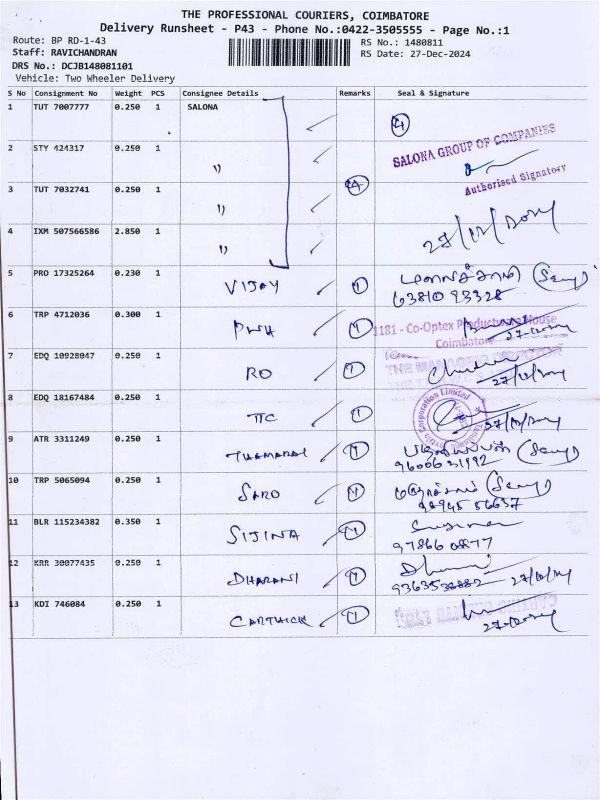 THE PROFESSIONAL COURIERS, COIMBATORE
Delivery Runsheet - P43 - Phone No.:0422-3505555 - Page No.:1
Route: BP RD-1-43
RS No.: 1480811
Staff: RAVICHANDRAN
RS Date: 27-Dec-2024
DRS No.: DCJB148081101
Vehicle: Two Wheeler Delivery
S No Consignment No Weight PCS Consignee Details Remarks Seal & Signature
1 TUT 7007777 0.250 1 SALONA 4
2 STY 424317 0.250 1 "
SALONA GROUP OF COMPANIES
Authorised Signatory
3 TUT 7032741 0.250 1 " 4
27/12/2024
4 IXM 507566586 2.850 1 "
5 PRO 17325264 0.230 1 VIJAY 1
63810 93328
6 TRP 4712036 0.300 1 PWH 1
1181 - Co-Optex House
Coimbatore
7 EDQ 10928047 0.250 1 RO 1
THE MANAGING DIRECTOR
27/12/2024
8 EDQ 18167484 0.250 1 TTC 1
27/12/2024
9 ATR 3311249 0.250 1 THAMARAI 1
96006 31992
10 TRP 5065094 0.250 1 SARO 1
98945 56637
11 BLR 115234382 0.350 1 SIJINA 1
97866 00877
12 KRR 30077435 0.250 1 DHARANI 1
9363538882 27/12/2024
13 KDI 746084 0.250 1 CARTHICK 1